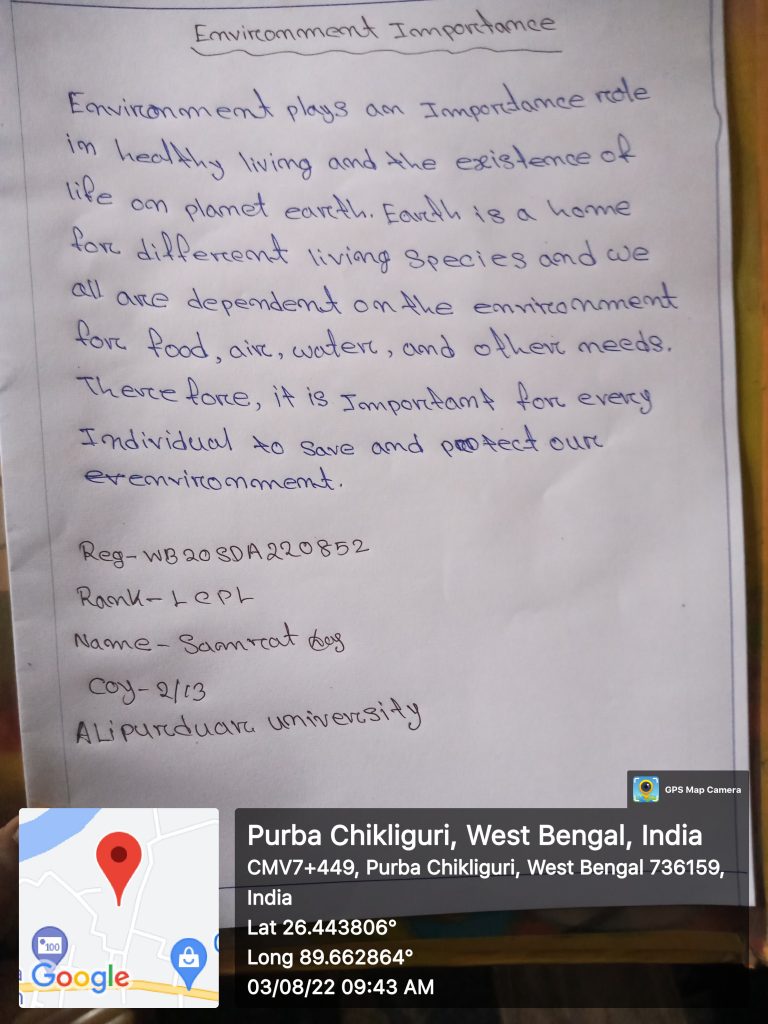 Environment Importance
Environment plays an Importance role
in healthy living and the existence of
life on planet earth. Earth is a home
for different living species and we
all are dependent on the environment
for food, air, water, and other needs.
Therefore, it is Important for every
Individual to save and protect our
environment.
Reg-WB20SDA220852
Rank-LCPL
Name-Samrat Das
Coy-2/13
ALipurduar university
GPS Map Camera
Purba Chikliguri, West Bengal, India
CMV7+449, Purba Chikliguri, West Bengal 736159,
India
Lat 26.443806°
Long 89.662864°
03/08/22 09:43 AM
100
Google